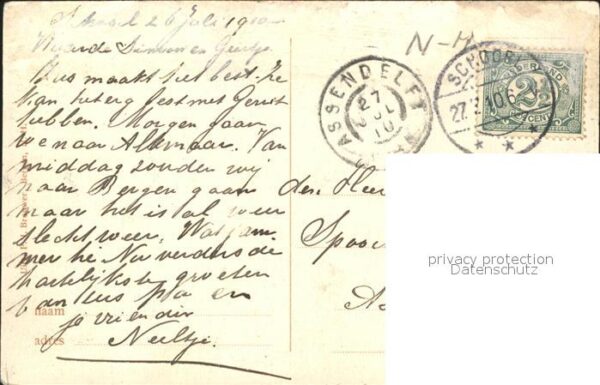 Juli 1910
Waarde Simon en Geertje
Zus maakt het best. Ze
kan het erg best met Geert
hebben. Morgen gaan
we naar Alkmaar. Van
middag zouden wij
naar Bergen gaan
maar het is al weer
slecht weer. Wat jam
mer he. Nu verder de
hartelijkste groeten
van zus Pa en
je vriendin
Neeltje.
naam
adres
N-H
ASSENDELFT
27
JUL
10
SCHOORL
27.7.10.6
NEDERLAND
2½
CENT
den Heer
Spoor
privacy protection
Datenschutz